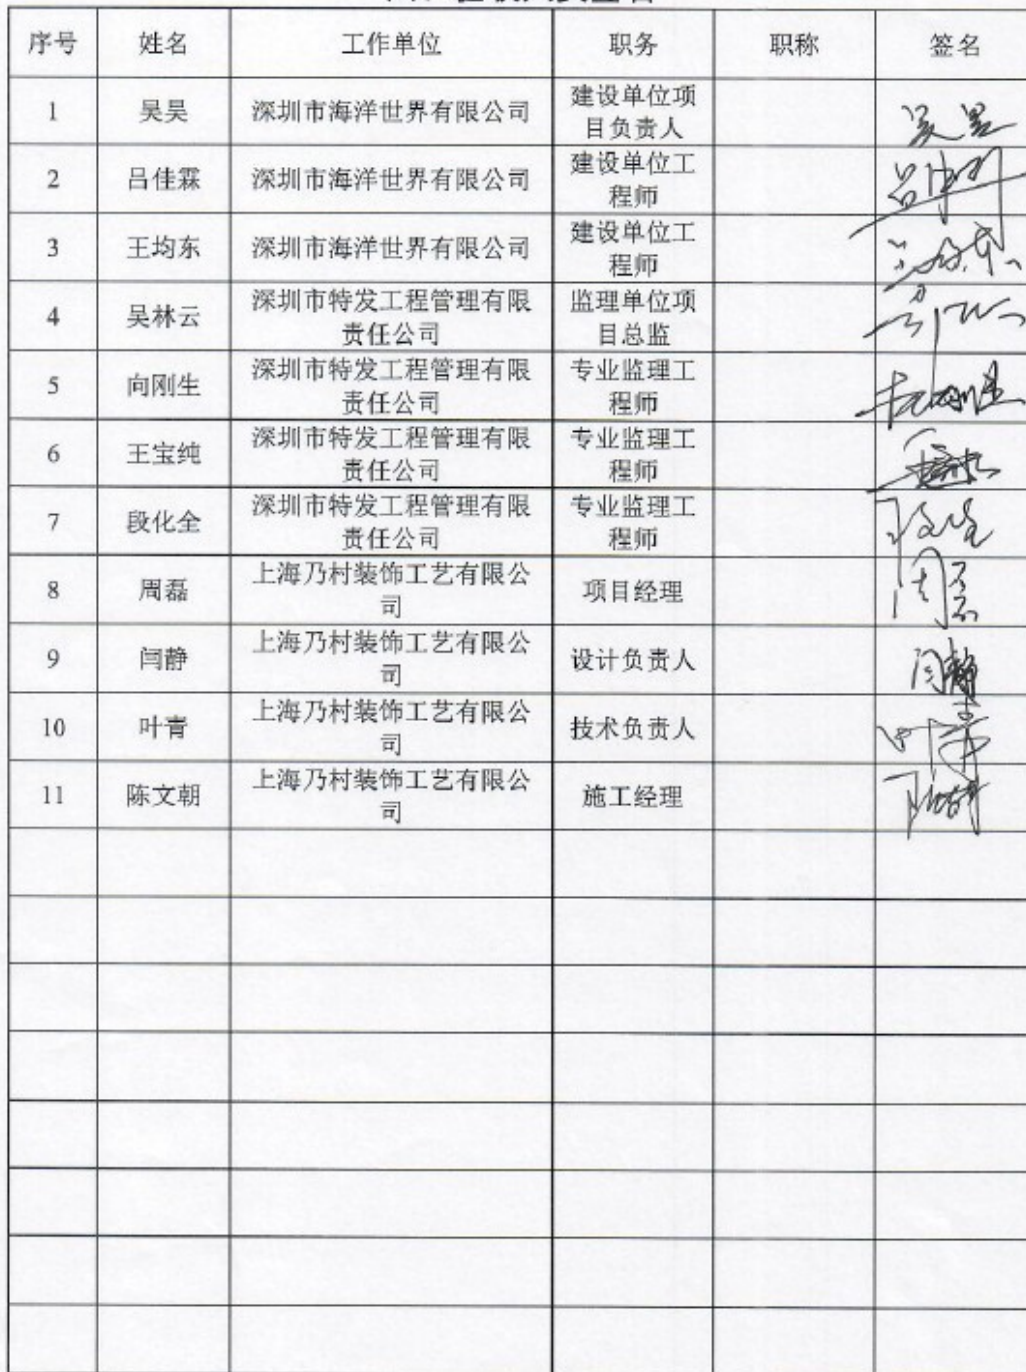 序号 姓名 工作单位 职务 职称 签名
1 吴昊 深圳市海洋世界有限公司 建设单位项
目负责人
2 吕佳霖 深圳市海洋世界有限公司 建设单位工
程师
3 王均东 深圳市海洋世界有限公司 建设单位工
程师
4 吴林云 深圳市特发工程管理有限 监理单位项
责任公司 目总监
5 向刚生 深圳市特发工程管理有限 专业监理工
责任公司 程师
6 王宝纯 深圳市特发工程管理有限 专业监理工
责任公司 程师
7 段化全 深圳市特发工程管理有限 专业监理工
责任公司 程师
8 周磊 上海乃村装饰工艺有限公 项目经理 周磊
司
9 闫静 上海乃村装饰工艺有限公 设计负责人 闫静
司
10 叶青 上海乃村装饰工艺有限公 技术负责人 叶青
司
11 陈文朝 上海乃村装饰工艺有限公 施工经理
司